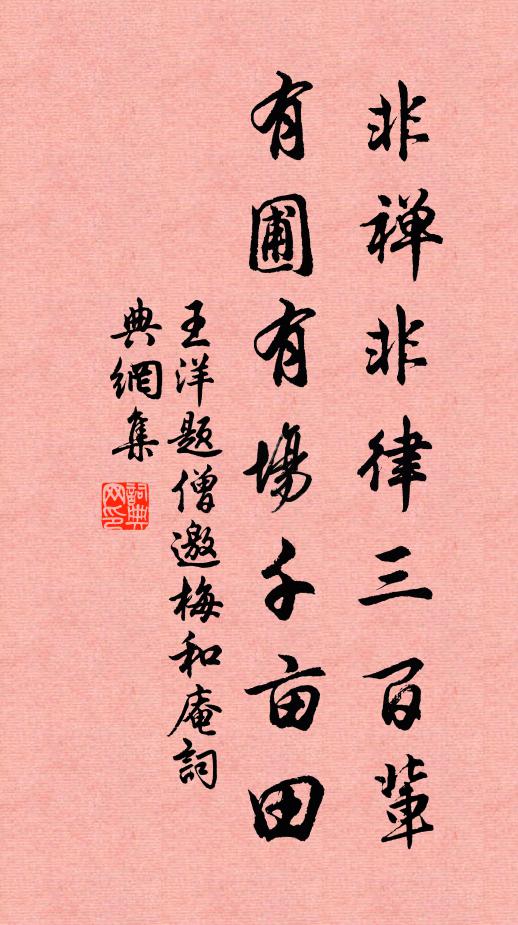 非禅非律三百輩
有圃有場千亩田
王洋题僧邀梅和庵詞
典網集
詞典网印